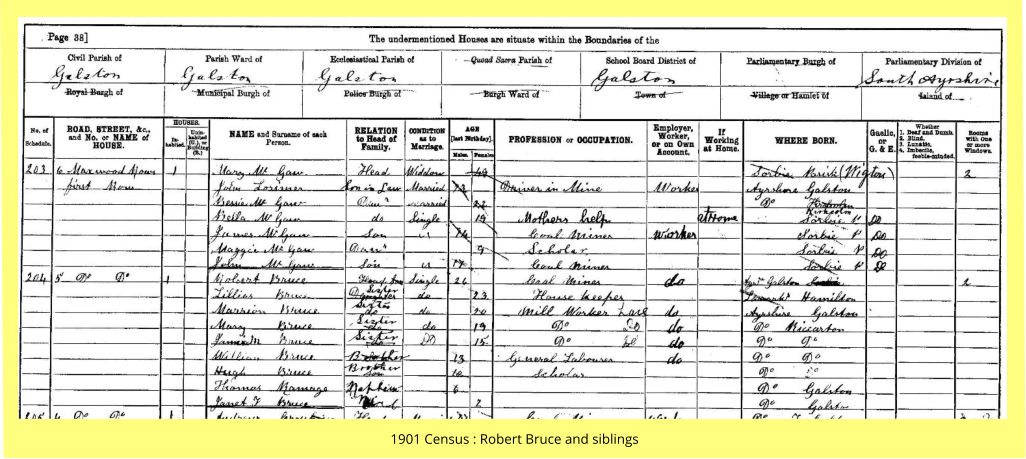 Page 38]
The undermentioned Houses are situate within the Boundaries of the
Civil Parish of Parish Ward of Ecclesiastical Parish of Quoad Sacra Parish of School Board District of Parliamentary Burgh of Parliamentary Division of
Galston Galston Galston Galston South Ayrshire
Royal Burgh of Municipal Burgh of Police Burgh of Burgh Ward of Town of Village or Hamlet of Island of
No. of Schedule. ROAD, STREET, &c., and No. or NAME of HOUSE. HOUSES. Inhabited. Uninhabited (U.), or Building (B.) NAME and Surname of each Person. RELATION to Head of Family. CONDITION as to Marriage. AGE [last Birthday]. Males. Females. PROFESSION or OCCUPATION. Employer, Worker, or on Own Account. If Working at Home. WHERE BORN. Gaelic, or G. & E. Whether 1. Deaf and Dumb. 2. Blind. 3. Lunatic. 4. Imbecile, feeble-minded. Rooms with One or more Windows.
203 6 Maxwood Rows 1 Mary Mc Gaw Head Widow 49 Sorbie (Wigton) 2
first Row John Lorimer Son in Law Married Driver in Mine Worker Ayrshire Galston
Bessie Mc Gaw Daur married 22 Do
Bella Mc Gaw do Single 19 Mothers help at Home Sorbie Do
James McGaw Son 14 Coal Miner Worker Sorbie Do
Maggie Mc Gaw Daur 9 Scholar Sorbie Do
John Mc Gaw Son 17 Coal Miner Sorbie Do
204 5 Do Do 1 Robert Bruce Head Single 26 Coal Miner do Galston 2
Lillias Bruce Sister do 23 House keeper Hamilton
Marrion Bruce Sister do 20 Mill Worker Lace do Ayrshire Galston
Mary Bruce Sister do 19 Do Do do Do Riccarton
Bruce Sister Do 15 Do do Do Do
William Bruce Brother 13 General Labourer do Do Do
Hugh Bruce Brother 10 Scholar Do
Thomas Ramage Nephew 6 Do Galston
Janet F Bruce 2 Do Galston
1901 Census : Robert Bruce and siblings